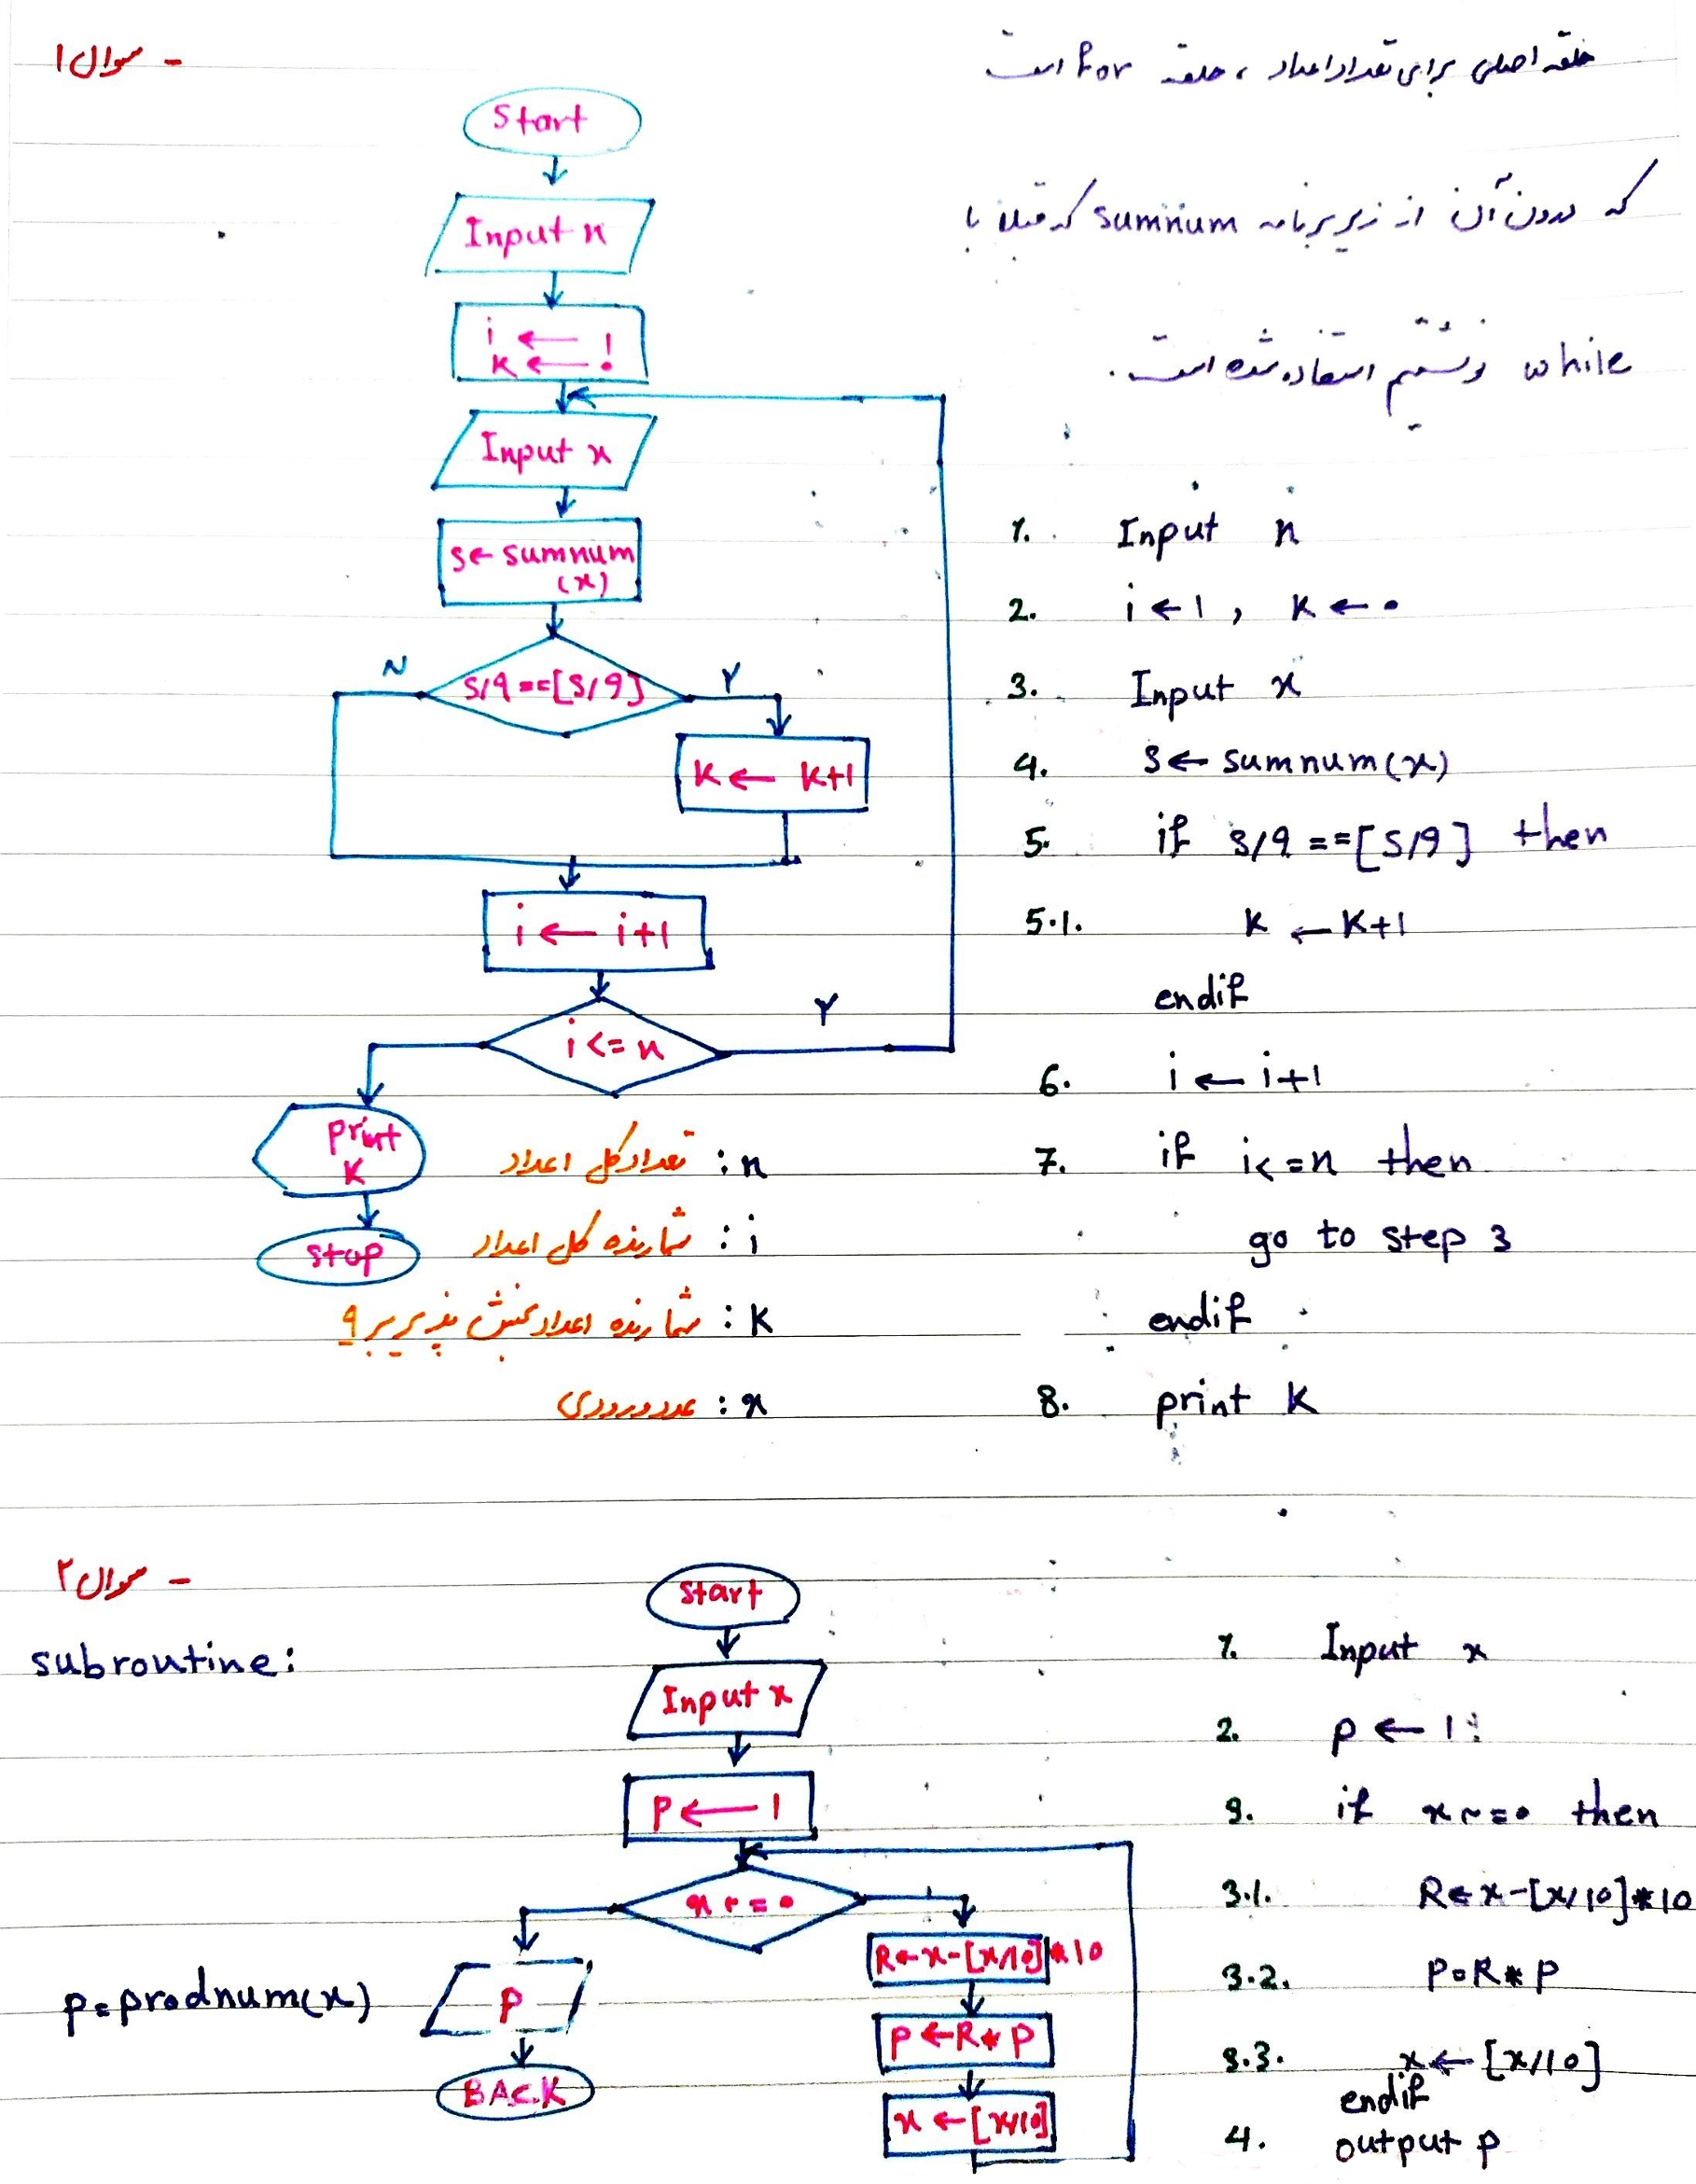 - سوال ۱
حلقه اصلی برای تعداد اعداد، حلقه for است
که درون آن از زیربرنامه sumnum که قبلا با
while نوشتیم استفاده شده است.
Start
Input n
i ← 1
K ← 0
Input x
s ← sumnum
(x)
S/9 == [S/9]
N
Y
K ← K+1
i ← i+1
i <= n
Y
print
K
stop
n : تعداد کل اعداد
i : شمارنده کل اعداد
K : شمارنده اعداد بخش پذیر بر ۹
x : عدد ورودی
1. Input n
2. i ← 1 , K ← 0
3. Input x
4. S ← sumnum(x)
5. if S/9 == [S/9] then
5.1. K ← K+1
endif
6. i ← i+1
7. if i <= n then
go to step 3
endif
8. print K
- سوال ۲
subroutine:
Start
Input x
P ← 1
x ~= 0
R ← x-[x/10]*10
P ← R * P
x ← [x/10]
p = prodnum(x)
P
BACK
1. Input x
2. P ← 1
3. if x ~= 0 then
3.1. R ← x-[x/10]*10
3.2. P = R * P
3.3. x ← [x/10]
endif
4. output p